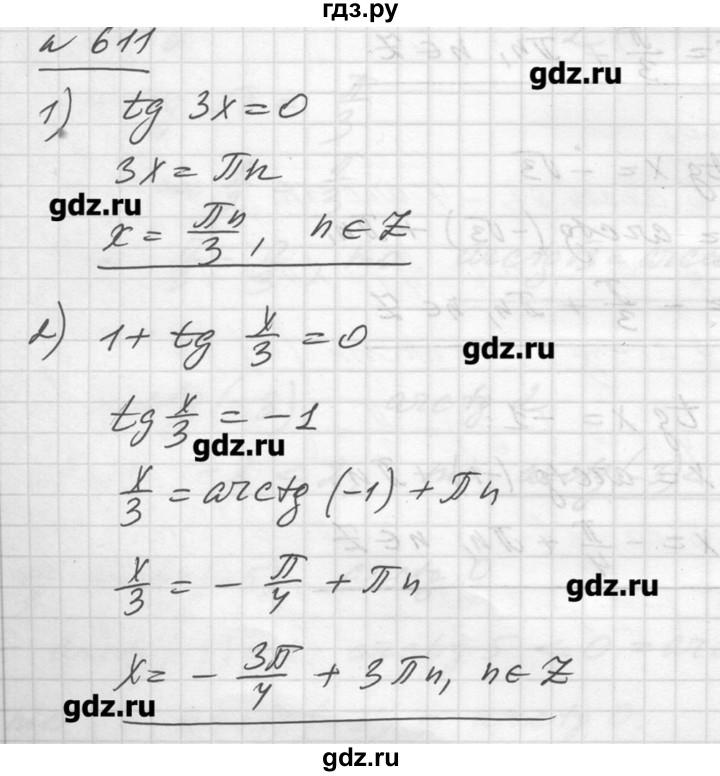 гдз.ру
№ 611
gdz.ru
1) tg 3x = 0
3x = πn
gdz.ru
x = πn/3, n ∈ Z
2) 1 + tg x/3 = 0
gdz.ru
tg x/3 = -1
gdz.ru
x/3 = arctg (-1) + πn
x/3 = - π/4 + πn
gdz.ru
x = - 3π/4 + 3πn, n ∈ Z
gdz.ru
gdz.ru